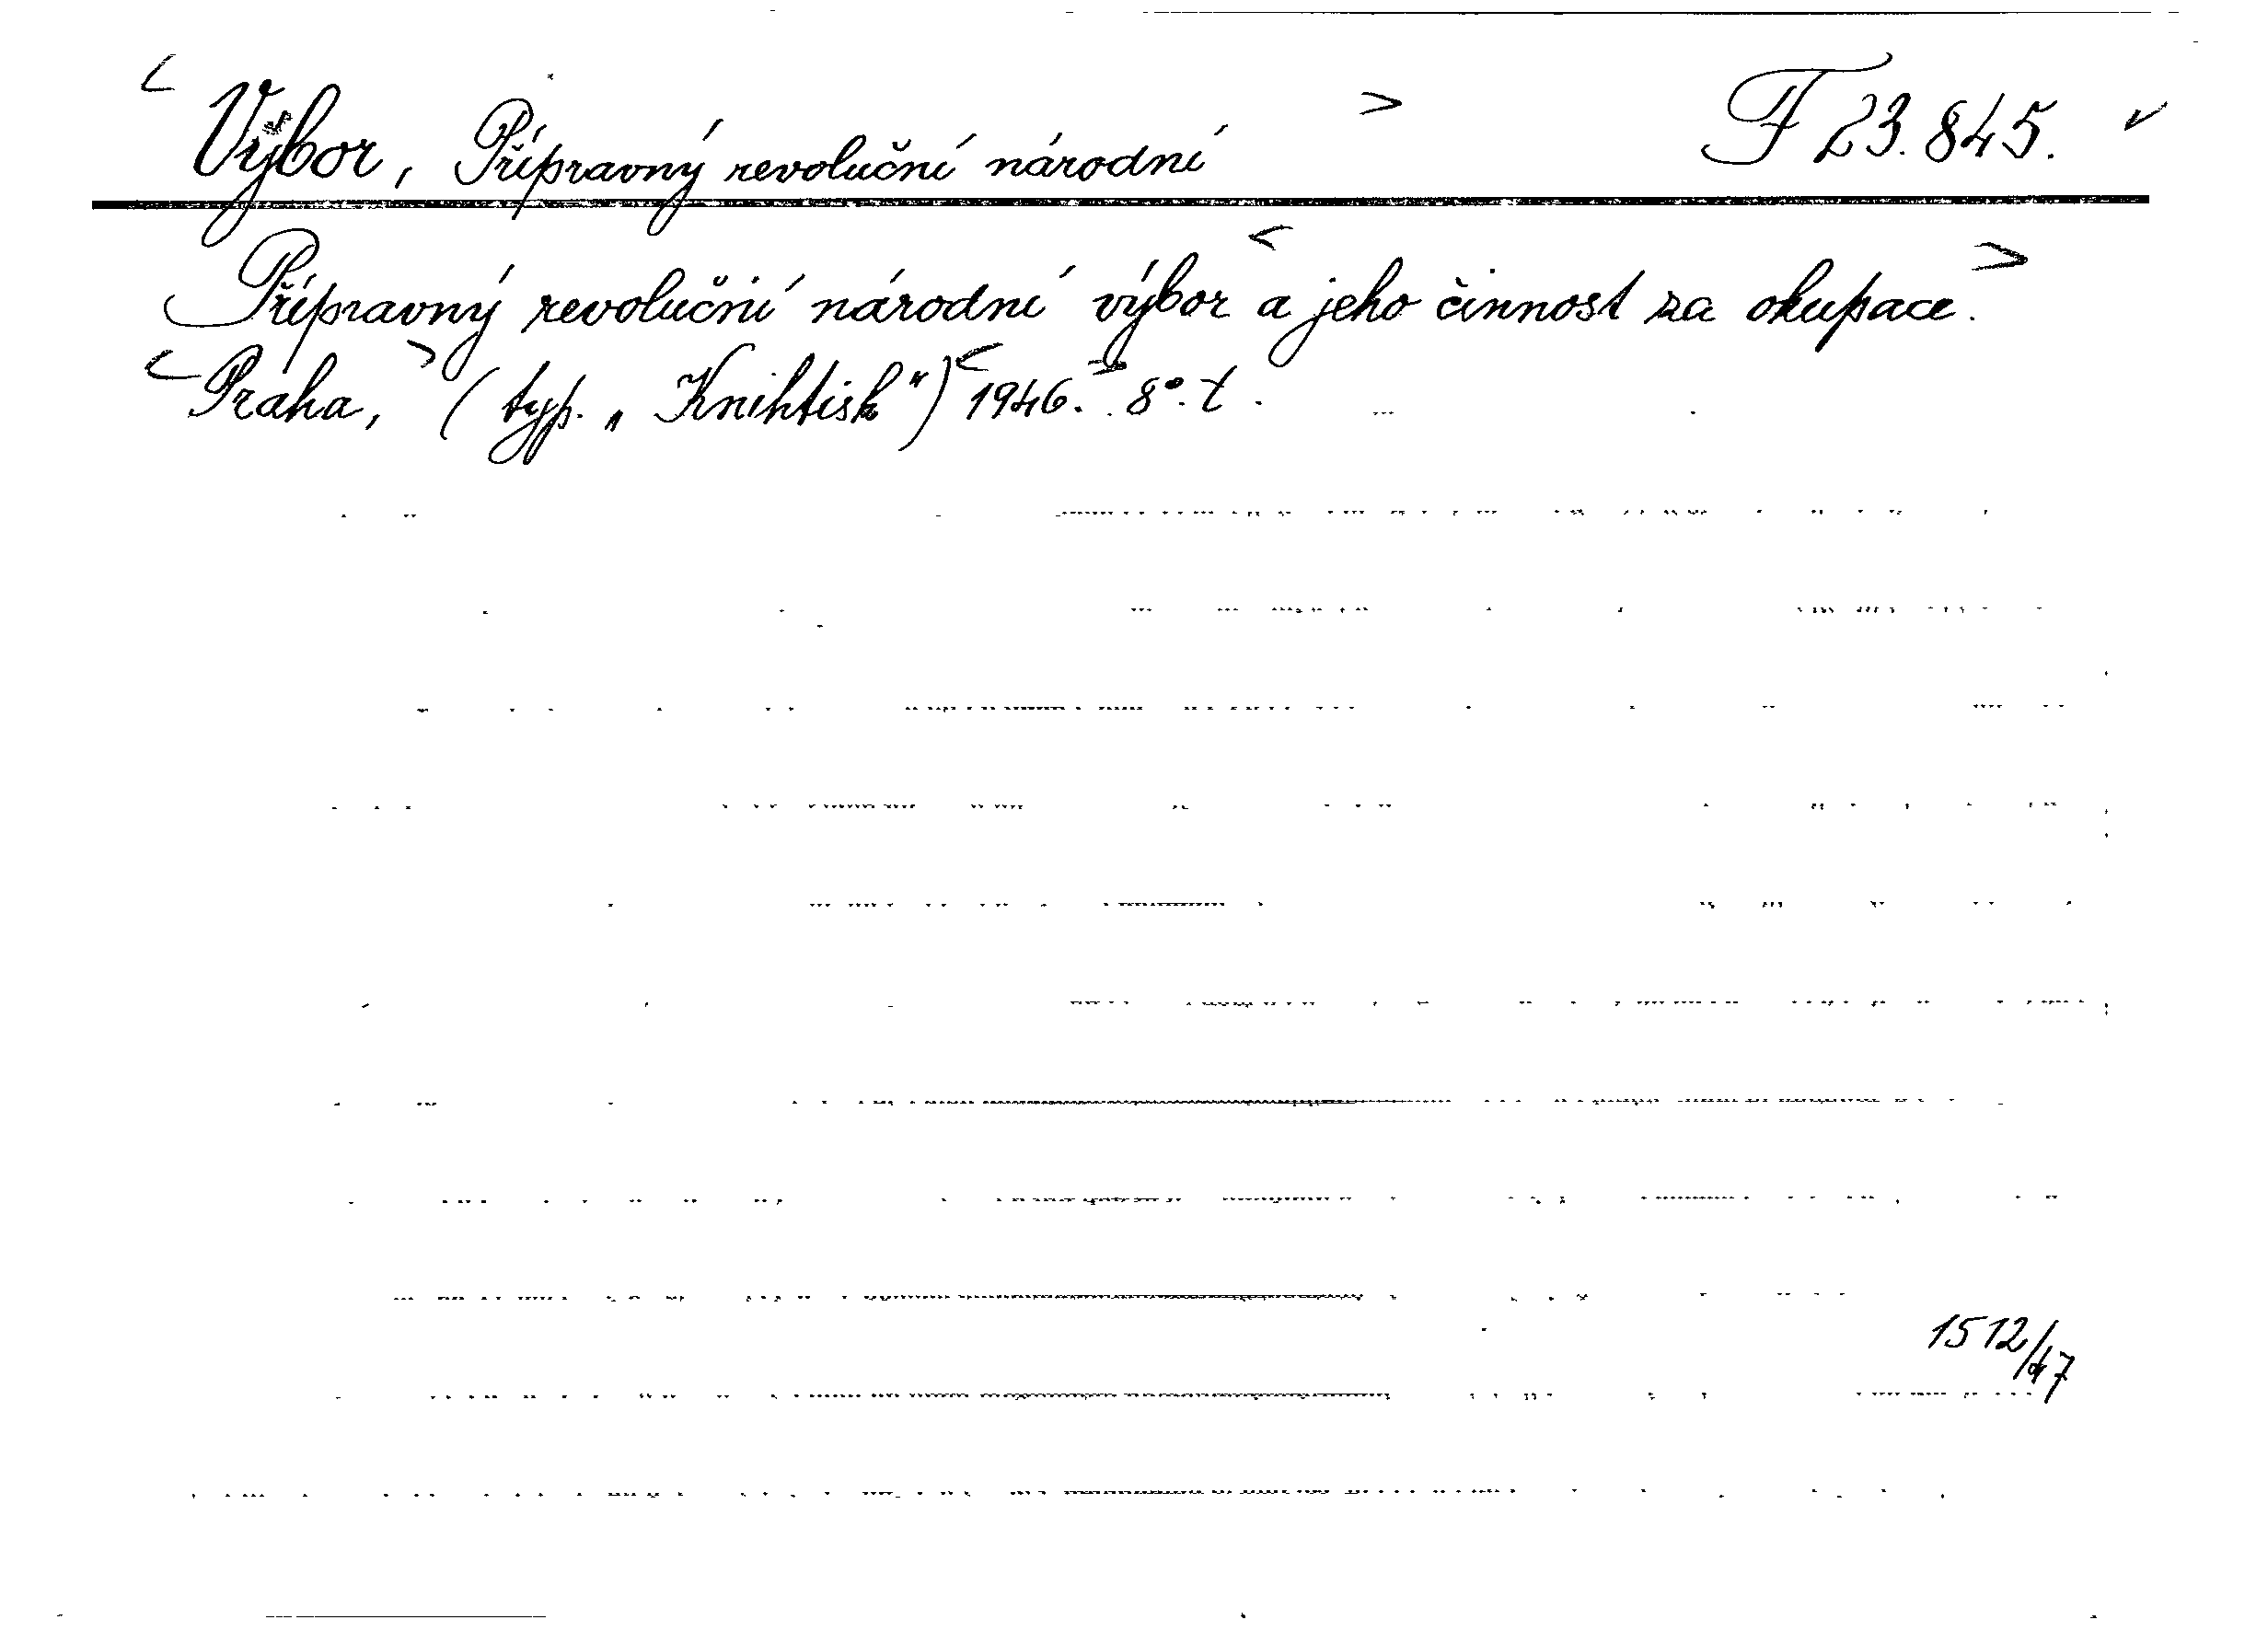 < Výbor, Přípravný revoluční národní > F 23.845. ✓
Přípravný revoluční národní výbor < a jeho činnost za okupace. >
< Praha, > (typ. „Knihtisk") < 1946. > 8°. t.
1512/47